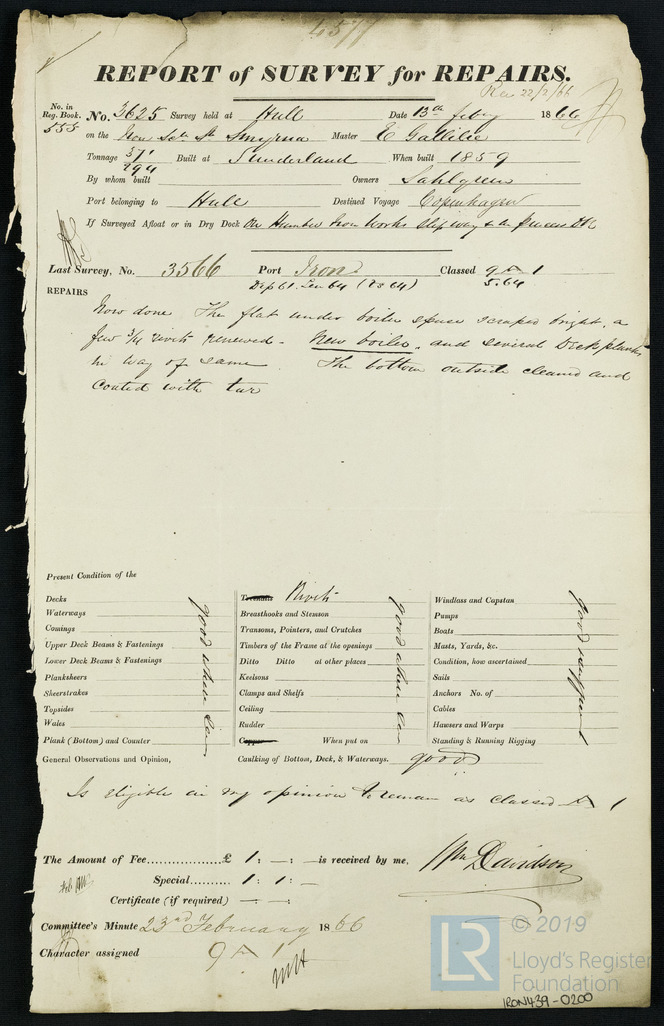 4577
REPORT of SURVEY for REPAIRS.
Rec 22/2/66
No. in Reg. Book. 555
No. 3625 Survey held at Hull Date 13th Feby 1866
on the Iron Scr St Smyrna Master E Gallilie
Tonnage 371 294 Built at Sunderland When built 1859
By whom built Owners Sahlgreen
Port belonging to Hull Destined Voyage Copenhagen
If Surveyed Afloat or in Dry Dock On Humber Iron Works Slipway & in Princes Dk
Last Survey, No. 3566 Port Iron Classed 9 A 1
5.64
REPAIRS
Now done The flat under boiler space scraped bright, a
few 3/4 rivets renewed - New boiler, and several Deck planks
in way of same The bottom outside cleaned and
Coated with tar
Present Condition of the
Decks
Waterways
Comings
Upper Deck Beams & Fastenings
Lower Deck Beams & Fastenings
Planksheers
Sheerstrakes
Topsides
Wales
Plank (Bottom) and Counter
good where seen
Treenails Rivets
Breasthooks and Stemson
Transoms, Pointers, and Crutches
Timbers of the Frame at the openings
Ditto Ditto at other places
Keelsons
Clamps and Shelfs
Ceiling
Rudder
Copper When put on
good where seen
Windlass and Capstan
Pumps
Boats
Masts, Yards, &c.
Condition, how ascertained
Sails
Anchors No. of
Cables
Hawsers and Warps
Standing & Running Rigging
good
General Observations and Opinion, Caulking of Bottom, Deck, & Waterways. good
Is eligible in my opinion to remain as classed A 1
The Amount of Fee £ 1 : — : — is received by me, Wm Davidson
Special 1 : 1 : —
Certificate (if required) — : —
Committee's Minute 23rd February 1866
Character assigned 9 A 1
LR
© 2019
Lloyd's Register
Foundation
IRON439-0200